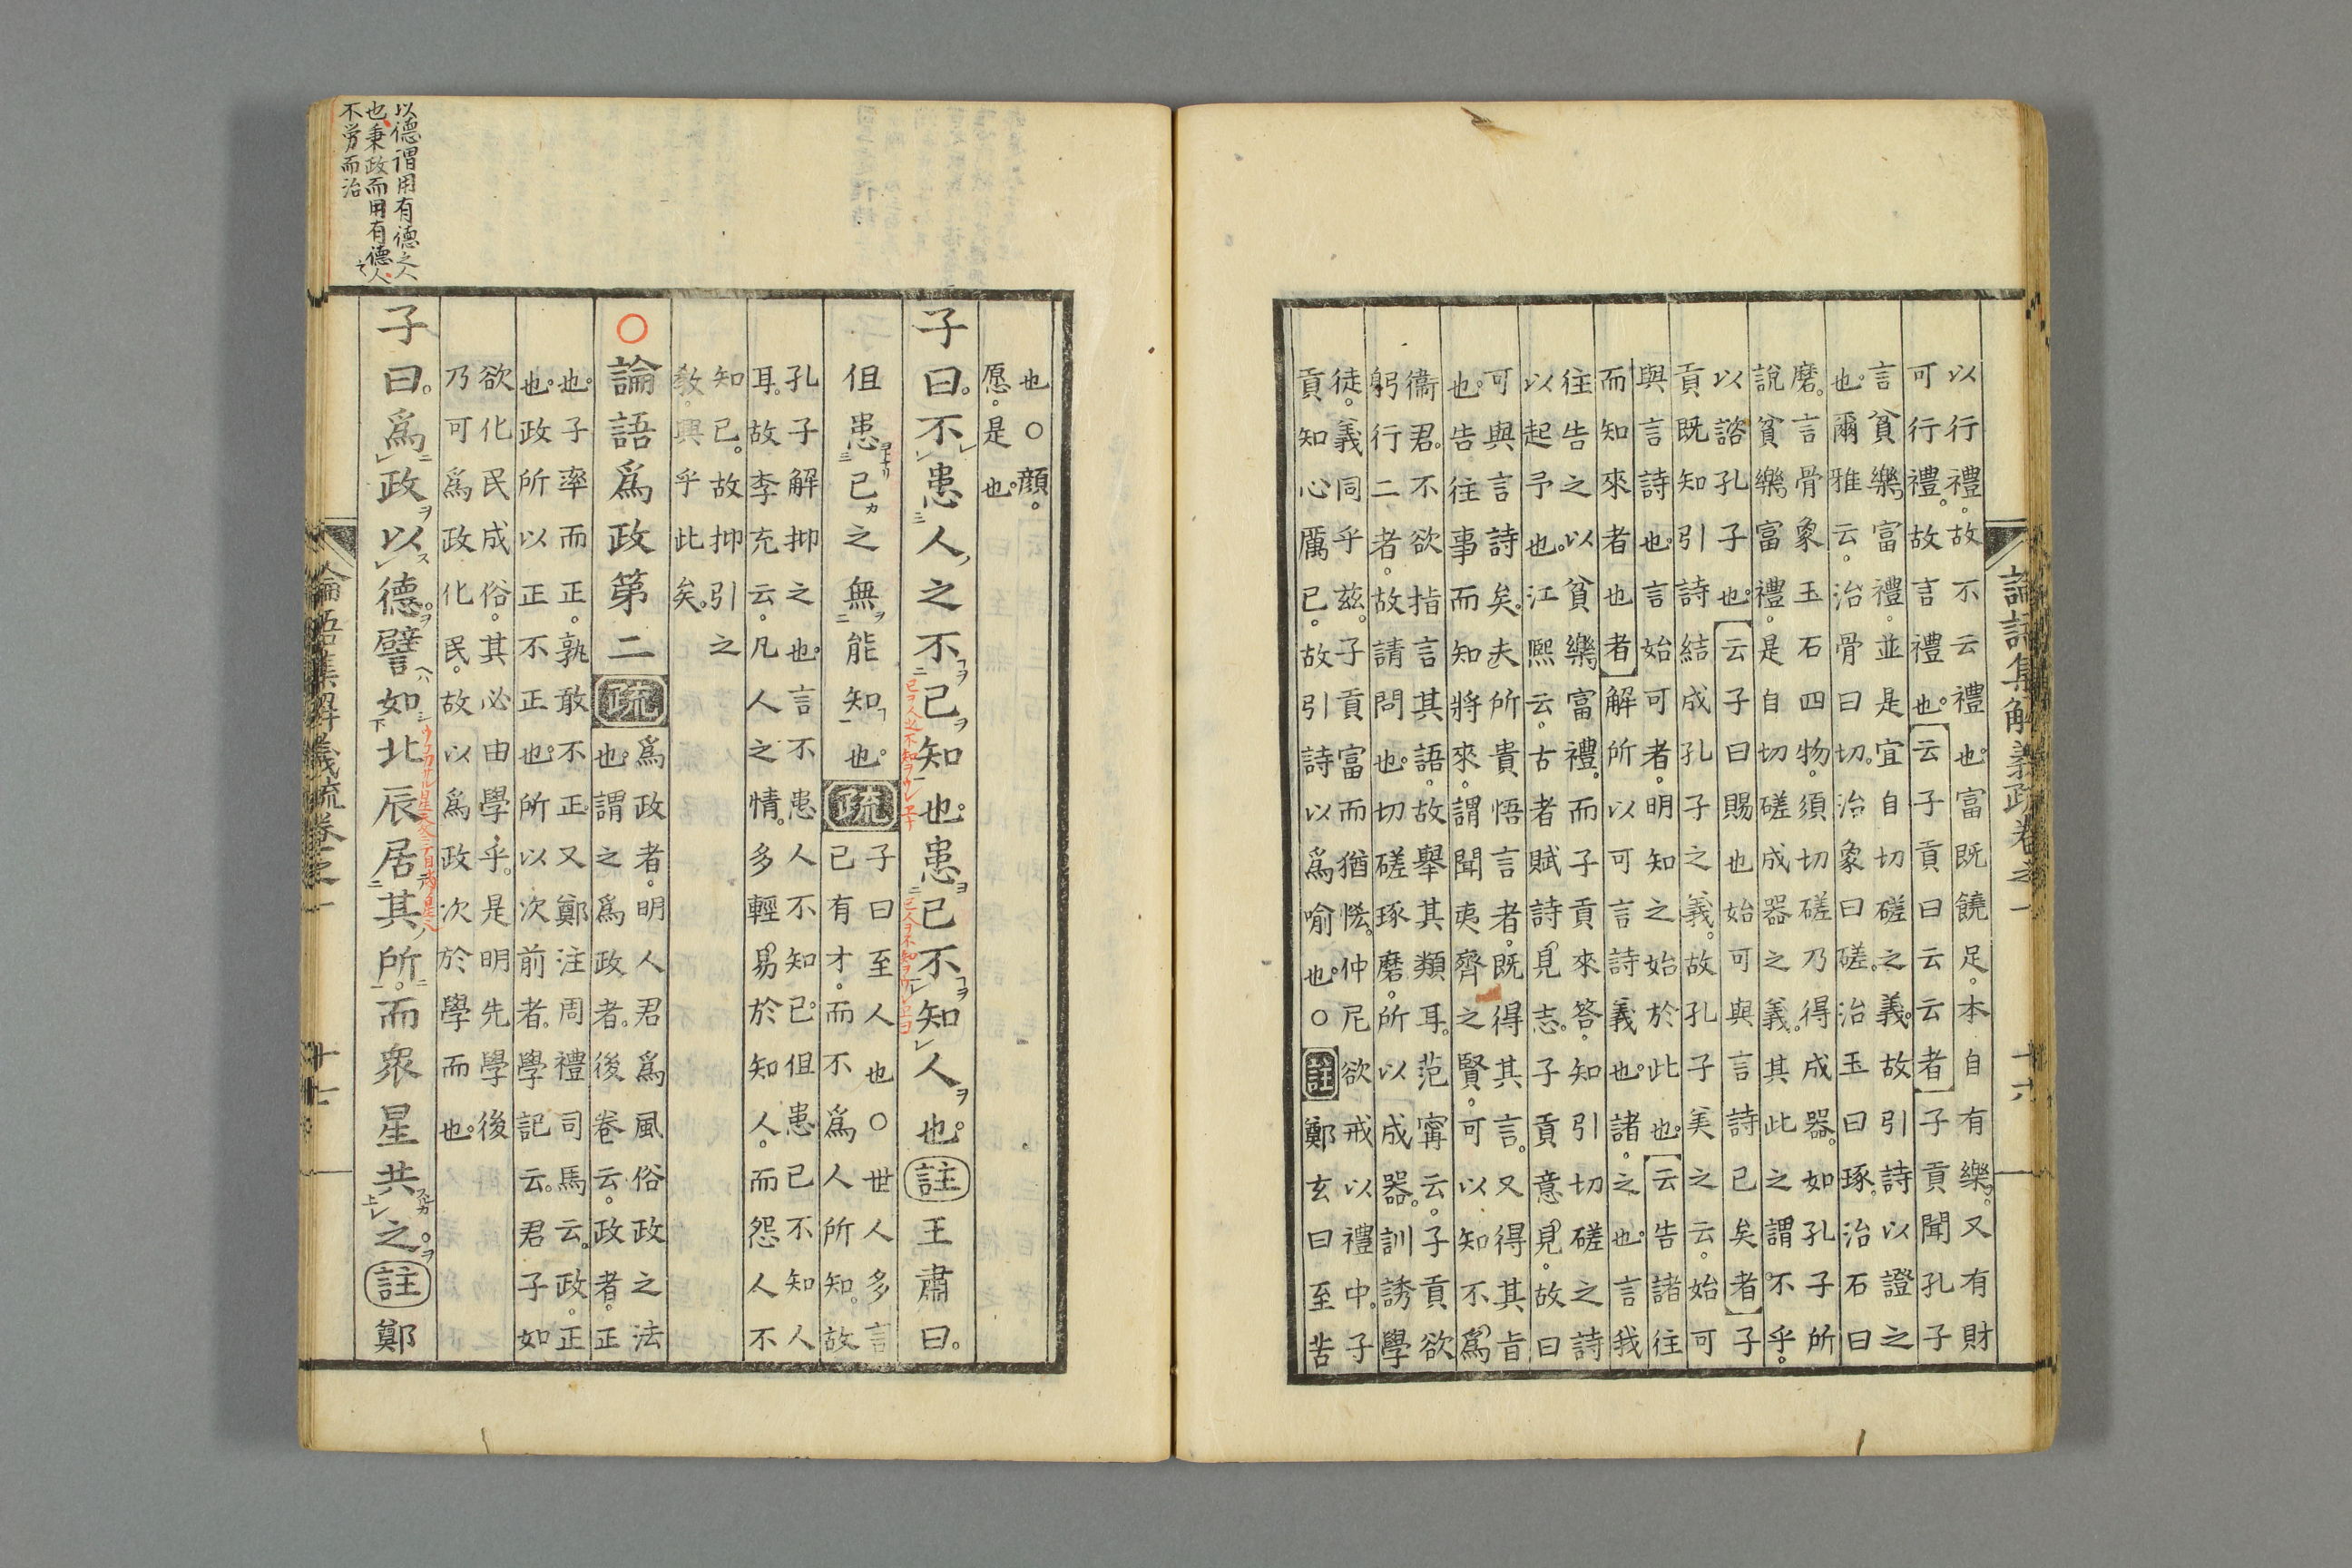 論語集解義疏卷之一
十六
以行禮故不云禮也。富既饒足。本自有樂。又有財
可行禮。故言禮也。云子貢曰云云者子貢聞孔子
言貧樂富禮。並是宜自切磋之義。故引詩以證之
也。爾雅云。治骨曰切。治象曰磋。治玉曰琢。治石曰
磨。言骨象玉石四物。須切磋乃得成器。如孔子所
說貧樂富禮。是自切磋成器之義。其此之謂不乎。
以諮孔子也。云子曰賜也始可與言詩已矣者子
貢既知引詩結成孔子之義。故孔子美之云。始可
與言詩也。言始可者。明知之始於此也。云告諸往
而知來者也者解所以可言詩義也。諸。之也。言我
往告之以貧樂富禮。而子貢來答。知引切磋之詩
以起予也。江熙云。古者賦詩見志。子貢意見。故曰
可與言詩矣。夫所貴悟言者。既得其言。又得其旨
也。告往事而知將來。謂聞夷齊之賢。可以知不爲
衞君。不欲指言其語。故舉其類耳。范甯云。子貢欲
躬行二者。故請問也。切磋琢磨。所以成器。訓誘學
徒。義同乎茲。子貢富而猶悋。仲尼欲戒以禮中。子
貢知心厲已。故引詩以爲喻也。○註鄭玄曰至苦
也○顔。
愿。是也。
子曰。不患人之不已知也。患已不知人也。註王肅曰。
但患已之無能知也。疏子曰至人也○世人多言
已有才。而不爲人所知。故
孔子解抑之也。言不患人不知已。但患已不知人
耳。故李充云。凡人之情。多輕易於知人。而怨人不
知已。故抑引之
敎。興乎此矣。
○論語爲政第二疏爲政者。明人君爲風俗政之法
也。謂之爲政者。後卷云。政者。正
也。子率而正。孰敢不正。又鄭注周禮司馬云。政。正
也。政所以正不正也。所以次前者。學記云。君子如
欲化民成俗。其必由學乎。是明先學後
乃可爲政化民。故以爲政次於學而也。
子曰。爲政以德。譬如北辰居其所。而衆星共之。註鄭
論語集解義疏卷之一
十七
以德謂用有德之人
也秉政而用有德人
不勞而治